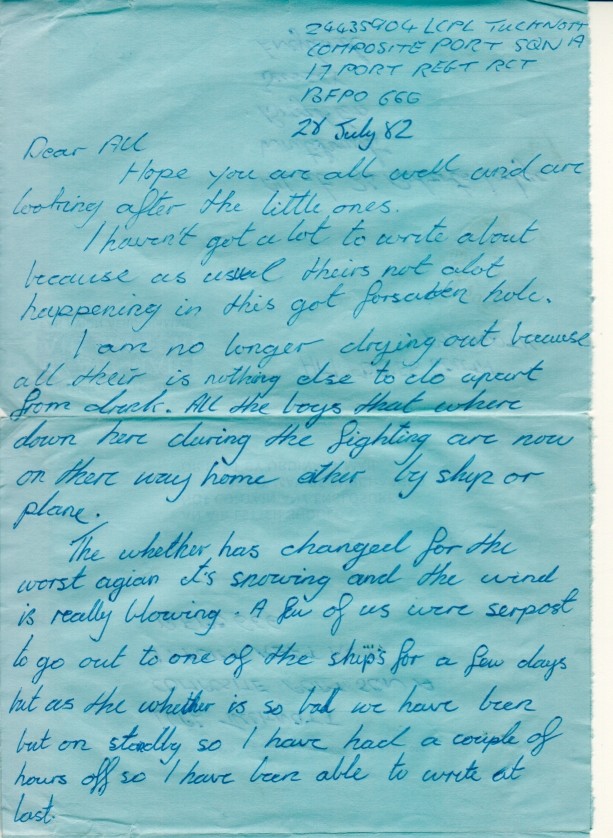 24435904 LCPL TUCKNOTT
COMPOSITE PORT SQN A
17 PORT REGT RCT
BFPO 666
28 July 82
Dear All
Hope you are all well and are
looking after the little ones.
I haven't got a lot to write about
because as usual theirs not alot
happening in this got forsaken hole.
I am no longer drying out because
all their is nothing else to do apart
from drink. All the boys that where
down here during the fighting are now
on there way home either by ship or
plane.
The whether has changed for the
worst agian it's snowing and the wind
is really blowing. A few of us were serpost
to go out to one of the ship's for a few days
but as the whether is so bad we have been
but on standby so I have had a couple of
hours off so I have been able to write at
last.